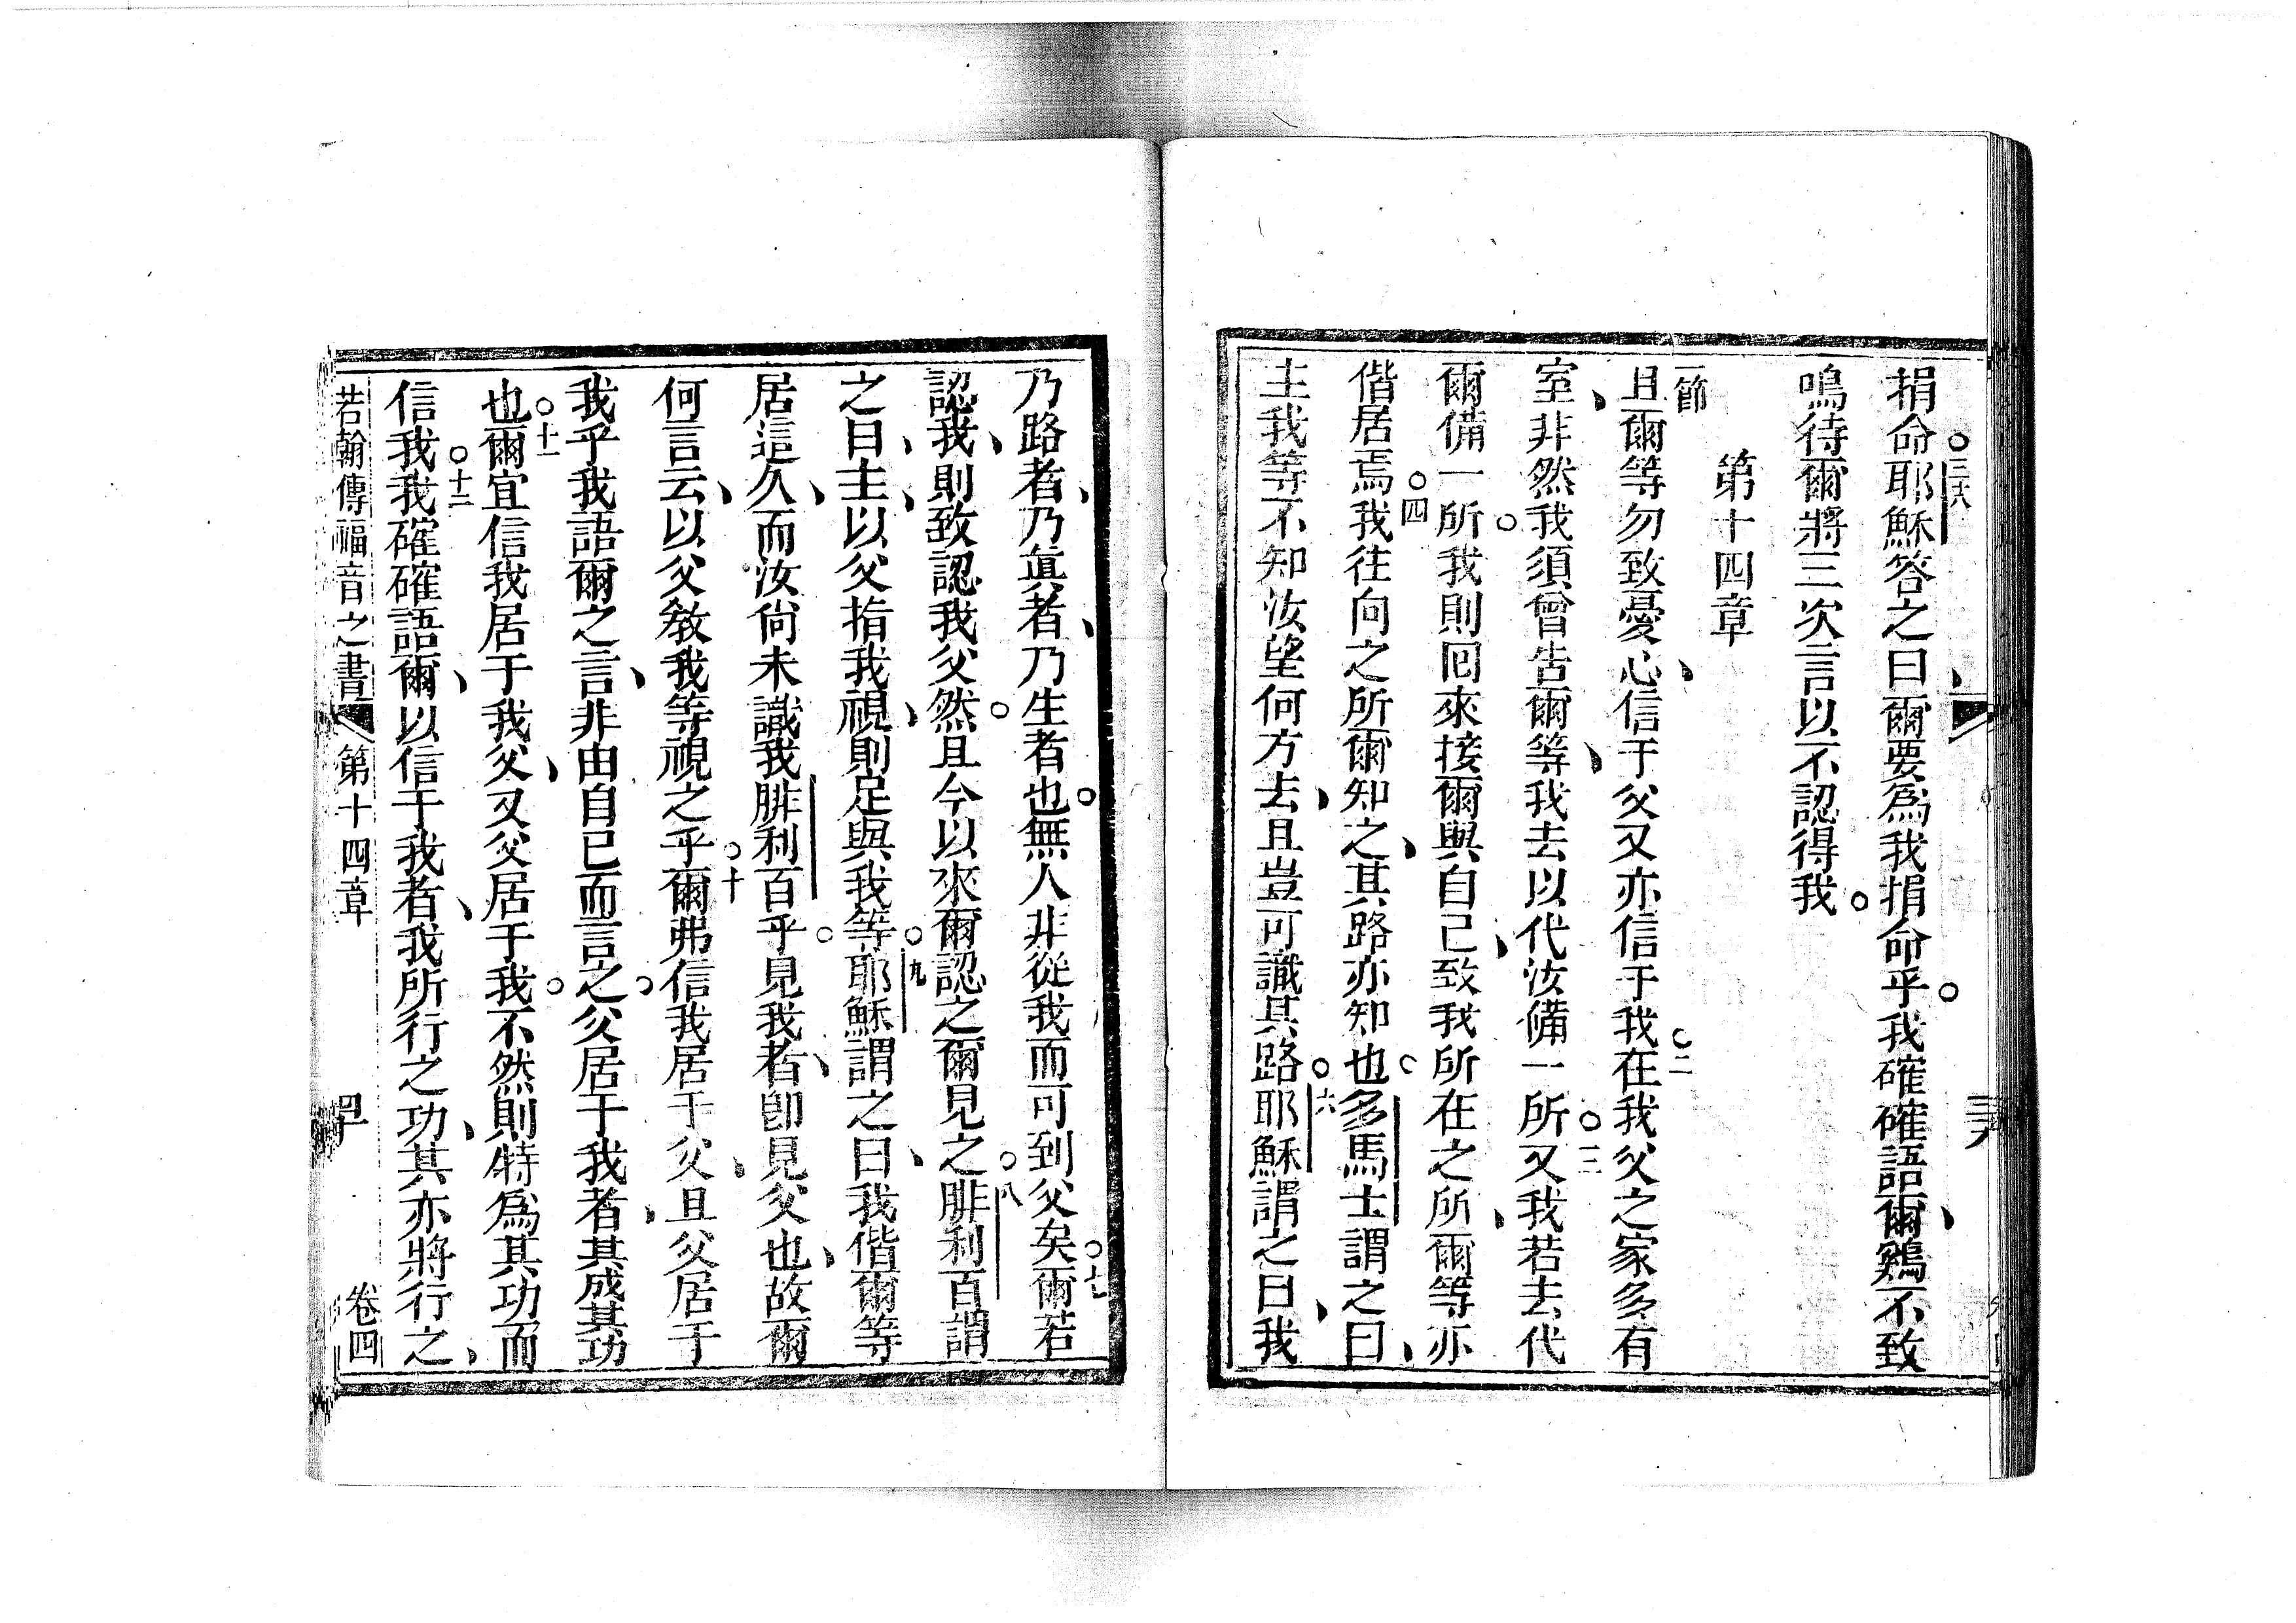 捐命○三八耶穌答之曰、爾要爲我捐命乎○我確確語爾、鷄不致
鳴待爾將三次言以不認得我○
第十四章
一節且爾等勿致憂心、信于父又亦信于我○二在我父之家多有
室、非然我須曾告爾等、我去以代汝備一所○三又我若去代
爾備一所○我則囘來接爾與自己、致我所在之所、爾等亦
偕居焉○四我往向之所爾知之、其路亦知也○多馬士謂之曰、
主我等不知汝望何方去、且豈可識其路○六耶穌謂之曰、我
乃路者、乃眞者、乃生者也○無人非從我而可到父矣○七爾若
認我、則致認我父然○且今以來爾認之爾見之○八腓利百謂
之曰、主、以父指我視、則足與我等○九耶穌謂之曰、我偕爾等
居這久、而汝尙未識我腓利百乎○見我者、卽見父也、故爾
何言云、以父教我等視之乎○十爾弗信我居于父、且父居于
我乎我語爾之言、非由自己而言之○父居于我者、其成其功
也○十一爾宜信我居于我父、又父居于我○不然則特爲其功而
信我○十二我確確語爾、以信于我者、我所行之功、其亦將行之、
若翰傳福音之書 第十四章 四十 卷四